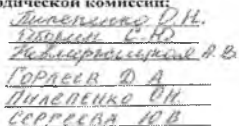 одической комиссии:
Пилепенко О.Н.
С.Ю
А.В.
ГОРДЕЕВ Д А
ПИЛЕПЕНКО ОН.
СЕРГЕЕВА Ю В